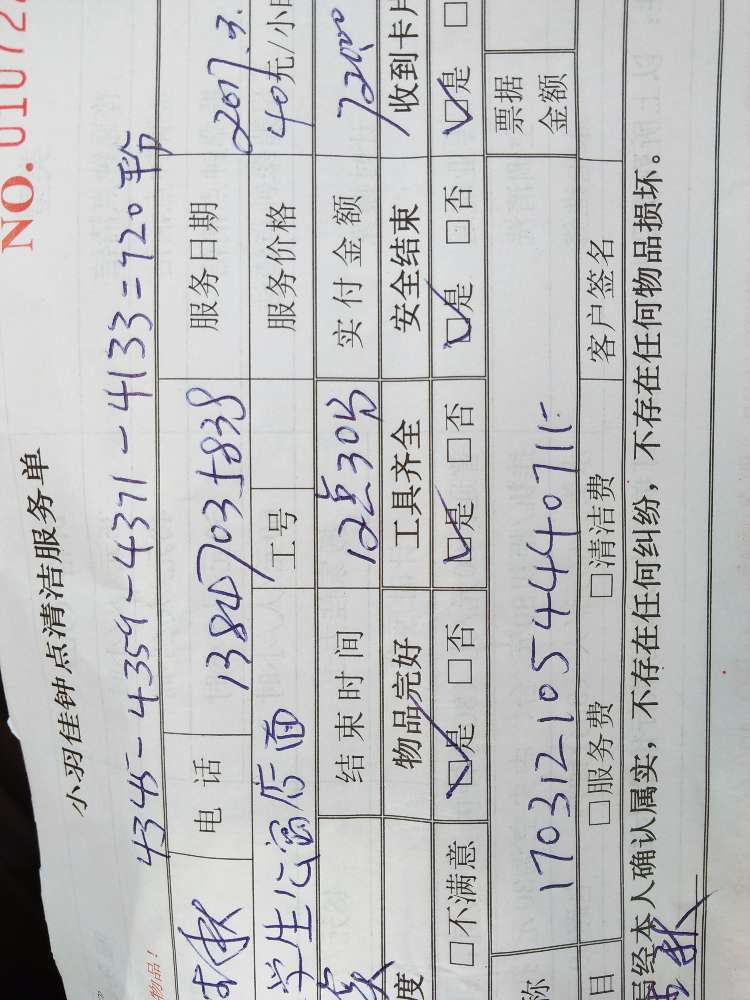 NO. 01072
小羽佳钟点清洁服务单
4345-4359-4371-4133=720
物品！
电 话 13847035838 服务日期 2017.3.
学生公寓后面 工号 服务价格 40元/小时
结束时间 12点30分 实付金额 720.00
物品完好 工具齐全 安全结束 收到卡片
度 □不满意 ☑是 □否 ☑是 □否 ☑是 □否 ☑是 □
称 170312105444071 票据金额
目 □服务费 □清洁费 客户签名
经本人确认属实，不存在任何纠纷，不存在任何物品损坏。